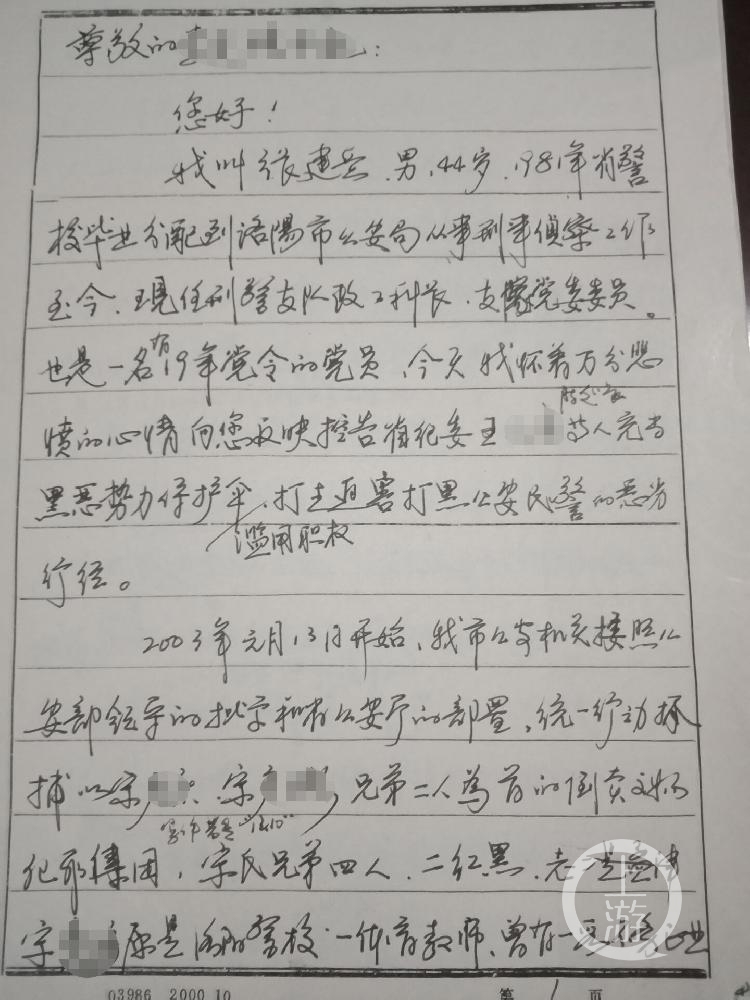 尊敬的
您好！
我叫张建兵，男，44岁，1981年省警
校毕业分配到洛陽市公安局从事刑事侦察工作
至今，现任刑警支队政工科长，支队党委委员。
也是一名有19年党令的党员，今天我怀着万分悲
愤的心情向您反映控告省纪委王 等人充当
黑恶势力保护伞，滥用职权，打击迫害打黑公安民警的恶劣
行径。
2003年元月13日开始，我市公安机关按照公
安部领导的批字和省公安厅的部置，统一行动抓
捕以宋 、宋 兄弟二人為首的倒卖文物
犯罪集团，宋氏兄弟四人，二红黑，老
宋 原是洛阳警校一体育教师，曾有一
03986 2000.10 第 1 页
上游